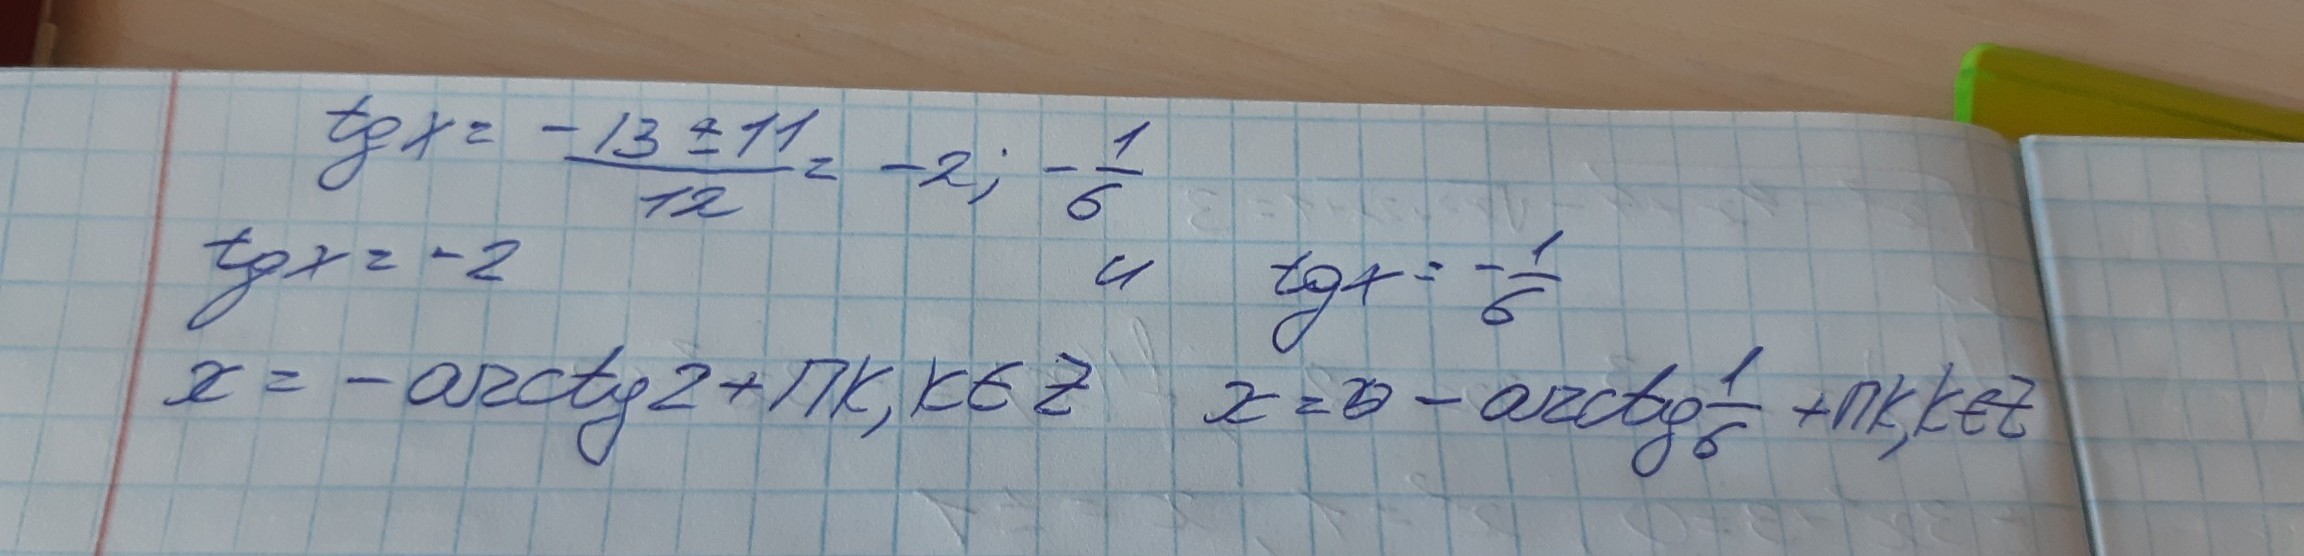 tg x = (-13 ± 11)/12 = -2; -1/6
tg x = -2 и tg x = -1/6
x = - arctg 2 + πk, k ∈ Z x = - arctg 1/6 + πk, k ∈ Z